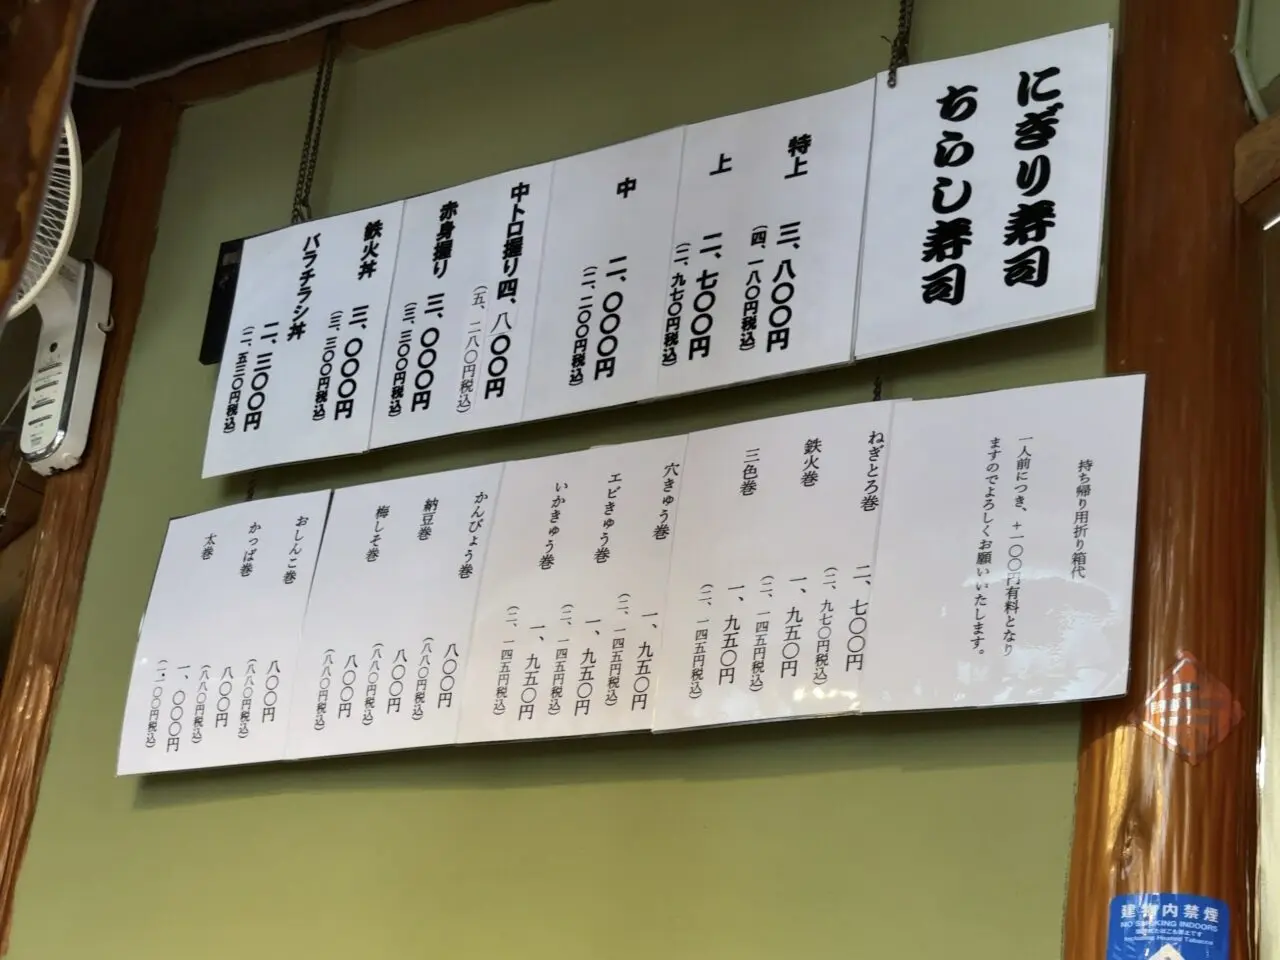 にぎり寿司
ちらし寿司
特上 三、八〇〇円
(四、一八〇円税込)
上 二、七〇〇円
(二、九七〇円税込)
中 二、〇〇〇円
(二、二〇〇円税込)
中トロ握り 四、八〇〇円
(五、二八〇円税込)
赤身握り 三、〇〇〇円
(三、三〇〇円税込)
鉄火丼 三、〇〇〇円
(三、三〇〇円税込)
バラチラシ丼
二、三〇〇円
(二、五三〇円税込)
持ち帰り用折り箱代
一人前につき、+一〇〇円有料となり
ますのでよろしくお願いいたします。
ねぎとろ巻 二、七〇〇円
(二、九七〇円税込)
鉄火巻 一、九五〇円
(二、一四五円税込)
三色巻 一、九五〇円
(二、一四五円税込)
穴きゅう巻 一、九五〇円
(二、一四五円税込)
エビきゅう巻 一、九五〇円
(二、一四五円税込)
いかきゅう巻 一、九五〇円
(二、一四五円税込)
かんぴょう巻 八〇〇円
(八八〇円税込)
納豆巻 八〇〇円
(八八〇円税込)
梅しそ巻 八〇〇円
(八八〇円税込)
おしんこ巻 八〇〇円
(八八〇円税込)
かっぱ巻 八〇〇円
(八八〇円税込)
太巻 一、〇〇〇円
(一、一〇〇円税込)
建物内禁煙
NO SMOKING INDOORS
Including Heated Tobacco